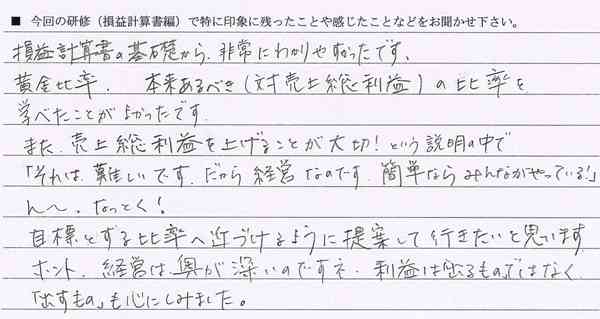 ■ 今回の研修（損益計算書編）で特に印象に残ったことや感じたことなどをお聞かせ下さい。
損益計算書の基礎から、非常にわかりやすかったです。
黄金比率、本来あるべき（対売上総利益）の比率を
学べたことがよかったです。
また、売上総利益を上げることが大切！という説明の中で
「それは、難しいです。だから経営なのです。簡単ならみんながやっている！」
ん〜、なっとく！
目標とする比率へ近づけるように提案して行きたいと思います
ホント、経営は奥が深いのですネ、利益は出るものではなく、
「出すもの」も心にしみました。